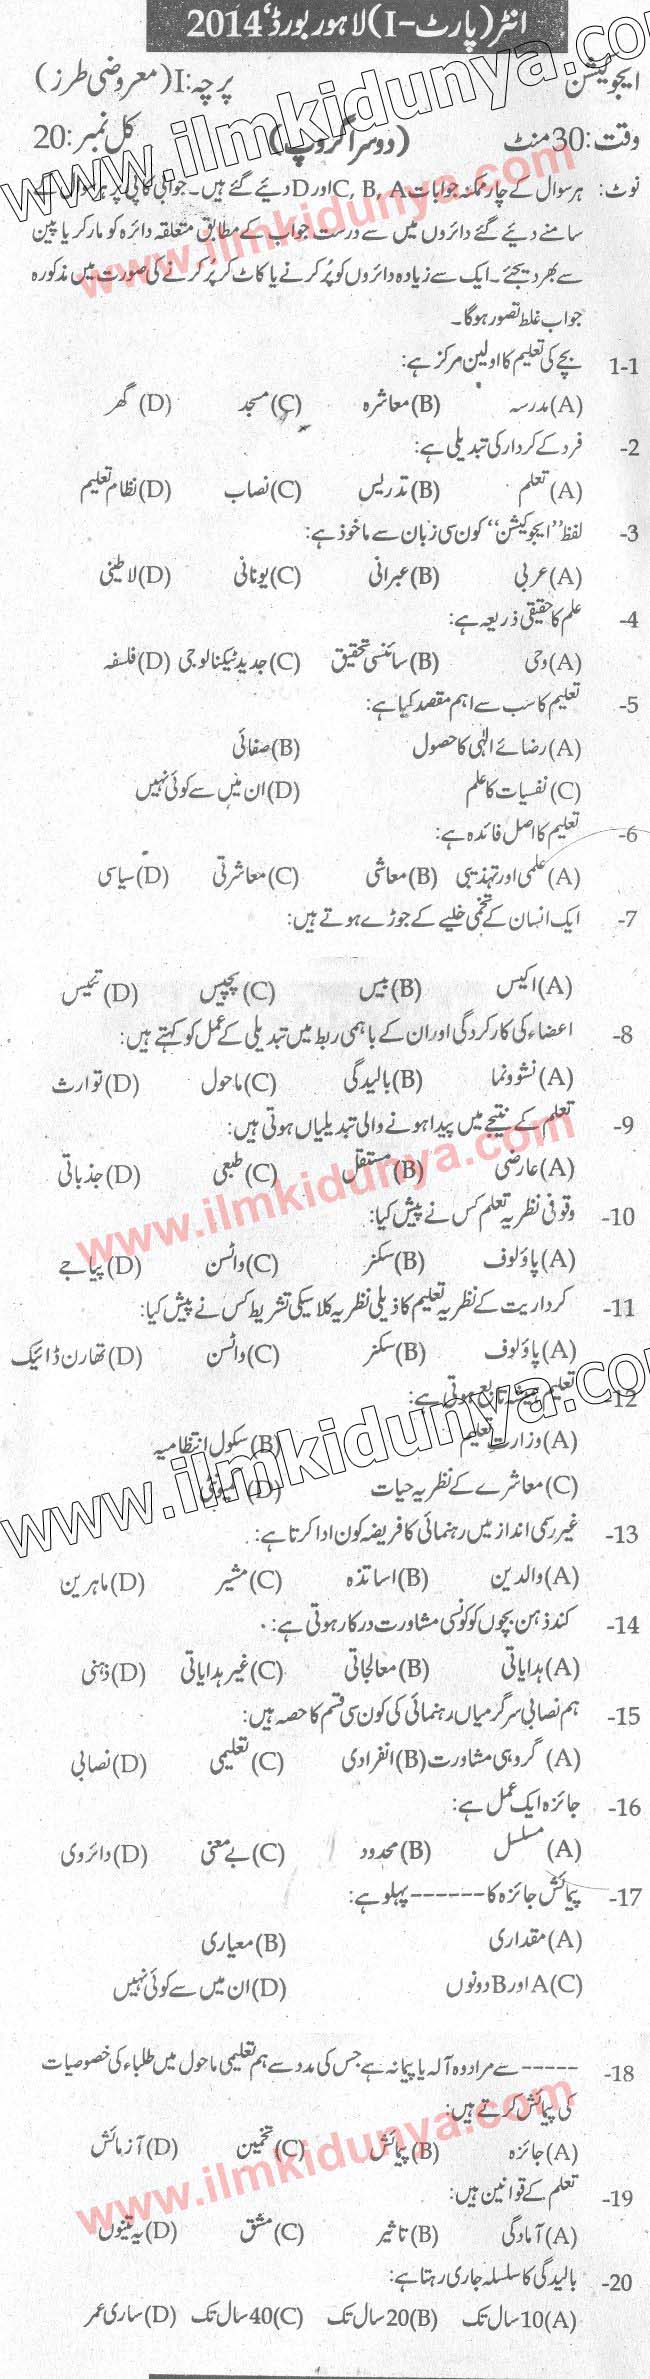 انٹر (پارٹ-I) لاہور بورڈ، 2014
ایجوکیشن پرچہ: I (معروضی طرز)
وقت: 30 منٹ (دوسرا گروپ) کل نمبر: 20
نوٹ: ہر سوال کے چار ممکنہ جوابات C, B, A اور D دیئے گئے ہیں۔ جوابی کاپی پر ہر سوال کے
سامنے دیئے گئے دائروں میں سے درست جواب کے مطابق متعلقہ دائرہ کو مارکر یا پین
سے بھر دیجئے۔ ایک سے زیادہ دائروں کو پُر کرنے یا کاٹ کر پُر کرنے کی صورت میں مذکورہ
جواب غلط تصور ہوگا۔
1-1 بچے کی تعلیم کا اولین مرکز ہے:
(A) مدرسہ (B) معاشرہ (C) مسجد (D) گھر
-2 فرد کے کردار کی تبدیلی ہے:
(A) تعلم (B) تدریس (C) نصاب (D) نظام تعلیم
-3 لفظ ''ایجوکیشن'' کون سی زبان سے ماخوذ ہے:
(A) عربی (B) عبرانی (C) یونانی (D) لاطینی
-4 علم کا حقیقی ذریعہ ہے:
(A) وحی (B) سائنسی تحقیق (C) جدید ٹیکنالوجی (D) فلسفہ
-5 تعلیم کا سب سے اہم مقصد کیا ہے:
(A) رضائے الٰہی کا حصول (B) صفائی
(C) نفسیات کا علم (D) ان میں سے کوئی نہیں
-6 تعلیم کا اصل فائدہ ہے:
(A) علمی اور تہذیبی (B) معاشی (C) معاشرتی (D) سیاسی
-7 ایک انسان کے تخمی خلیے کے جوڑے ہوتے ہیں:
(A) اکیس (B) بیس (C) پچیس (D) تئیس
-8 اعضاء کی کارکردگی اور ان کے باہمی ربط میں تبدیلی کے عمل کو کہتے ہیں:
(A) نشوونما (B) بالیدگی (C) ماحول (D) توارث
-9 تعلم کے نتیجے میں پیدا ہونے والی تبدیلیاں ہوتی ہیں:
(A) عارضی (B) مستقل (C) طبعی (D) جذباتی
-10 وقوفی نظریہ تعلم کس نے پیش کیا:
(A) پاؤلوف (B) سکنر (C) واٹسن (D) پیاجے
-11 کرداریت کے نظریہ تعلیم کا ذیلی نظریہ کلاسیکی تشریط کس نے پیش کیا:
(A) پاؤلوف (B) سکنر (C) واٹسن (D) تھارن ڈائیک
-12 تعلیم ہمیشہ تابع ہوتی ہے:
(A) وزارت تعلیم (B) سکول انتظامیہ
(C) معاشرے کے نظریہ حیات (D)
-13 غیر رسمی انداز میں رہنمائی کا فریضہ کون ادا کرتا ہے:
(A) والدین (B) اساتذہ (C) مشیر (D) ماہرین
-14 کند ذہن بچوں کو کونسی مشاورت درکار ہوتی ہے:
(A) ہدایاتی (B) معالجاتی (C) غیر ہدایاتی (D) ذہنی
-15 ہم نصابی سرگرمیاں رہنمائی کی کون سی قسم کا حصہ ہیں:
(A) گروہی مشاورت (B) انفرادی (C) تعلیمی (D) نصابی
-16 جائزہ ایک عمل ہے:
(A) مسلسل (B) محدود (C) بے معنی (D) دائروی
-17 پیمائش جائزہ کا ------ پہلو ہے:
(A) مقداری (B) معیاری
(C) A اور B دونوں (D) ان میں سے کوئی نہیں
-18 ----- سے مراد وہ آلہ یا پیمانہ ہے جس کی مدد سے ہم تعلیمی ماحول میں طلباء کی خصوصیات
کی پیمائش کرتے ہیں:
(A) جائزہ (B) پیمائش (C) تخمین (D) آزمائش
-19 تعلم کے قوانین ہیں:
(A) آمادگی (B) تاثیر (C) مشق (D) یہ تینوں
-20 بالیدگی کا سلسلہ جاری رہتا ہے:
(A) 10 سال تک (B) 20 سال تک (C) 40 سال تک (D) ساری عمر
www.ilmkidunya.com
www.ilmkidunya.com
www.ilmkidunya.com
www.ilmkidunya.com
www.ilmkidunya.com